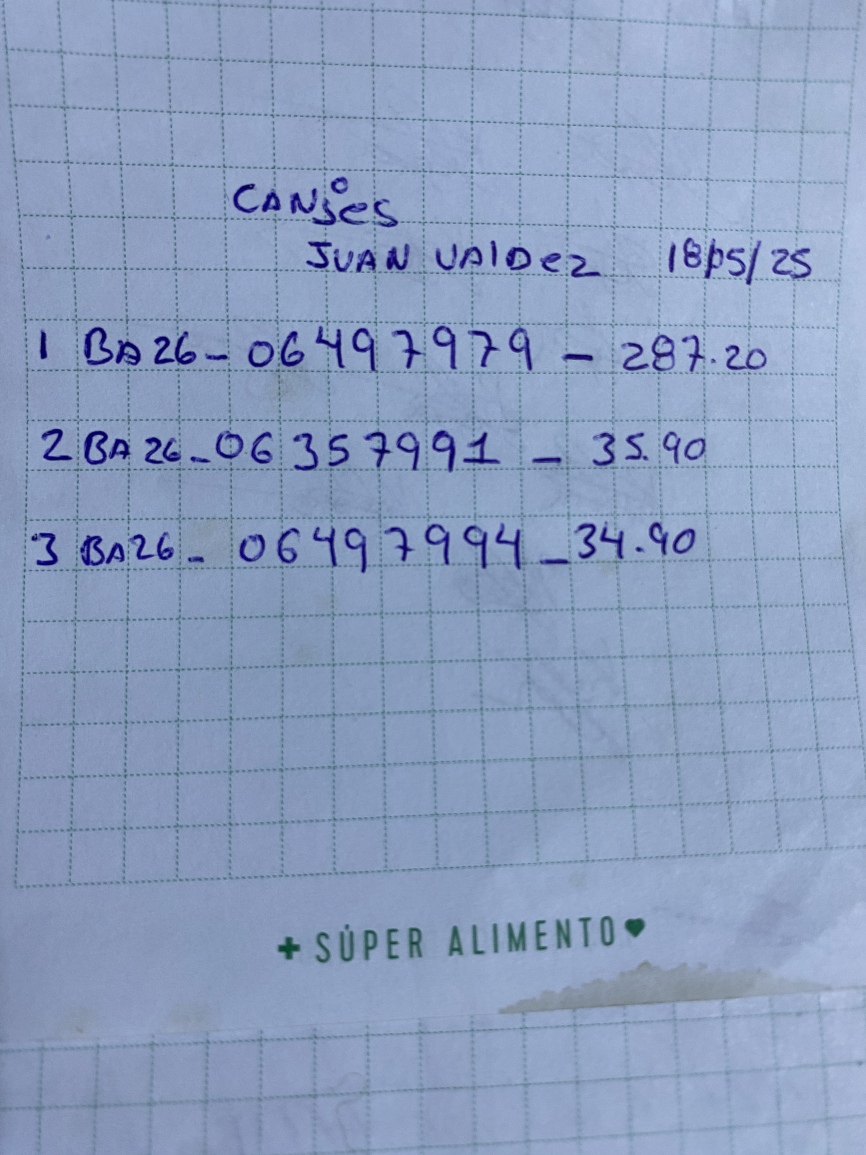 CANjes
JUAN VAlDez 18/05/25
1 BA26 - 06497979 - 287.20
2 BA26 - 06357991 - 35.90
3 BA26 - 06497994 - 34.90
+ SÚPER ALIMENTO ♥